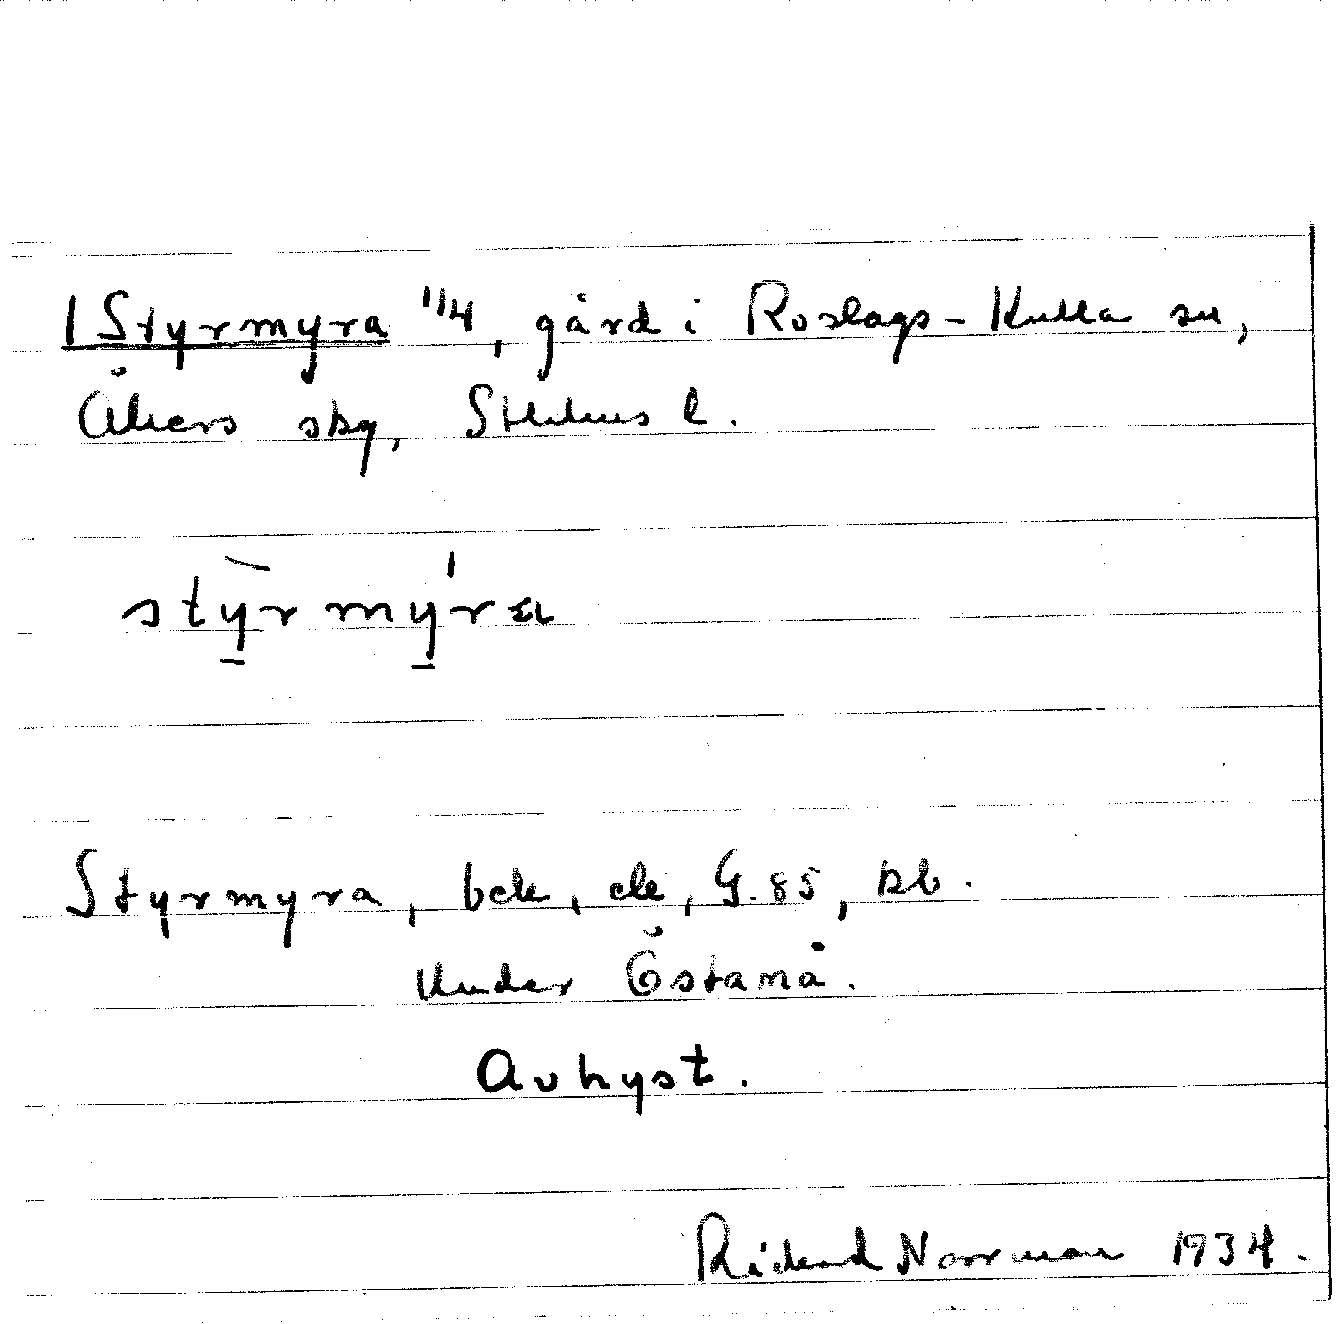 1 Styrmyra 1/4, gård i Roslags-Kulla sn,
Åkers skg, Sthlms l.
stỳrmy̍ra
Styrmyra, bck, ek, G. 85, kb.
Under Östanå.
Avhyst.
Rickard Norrman 1934.